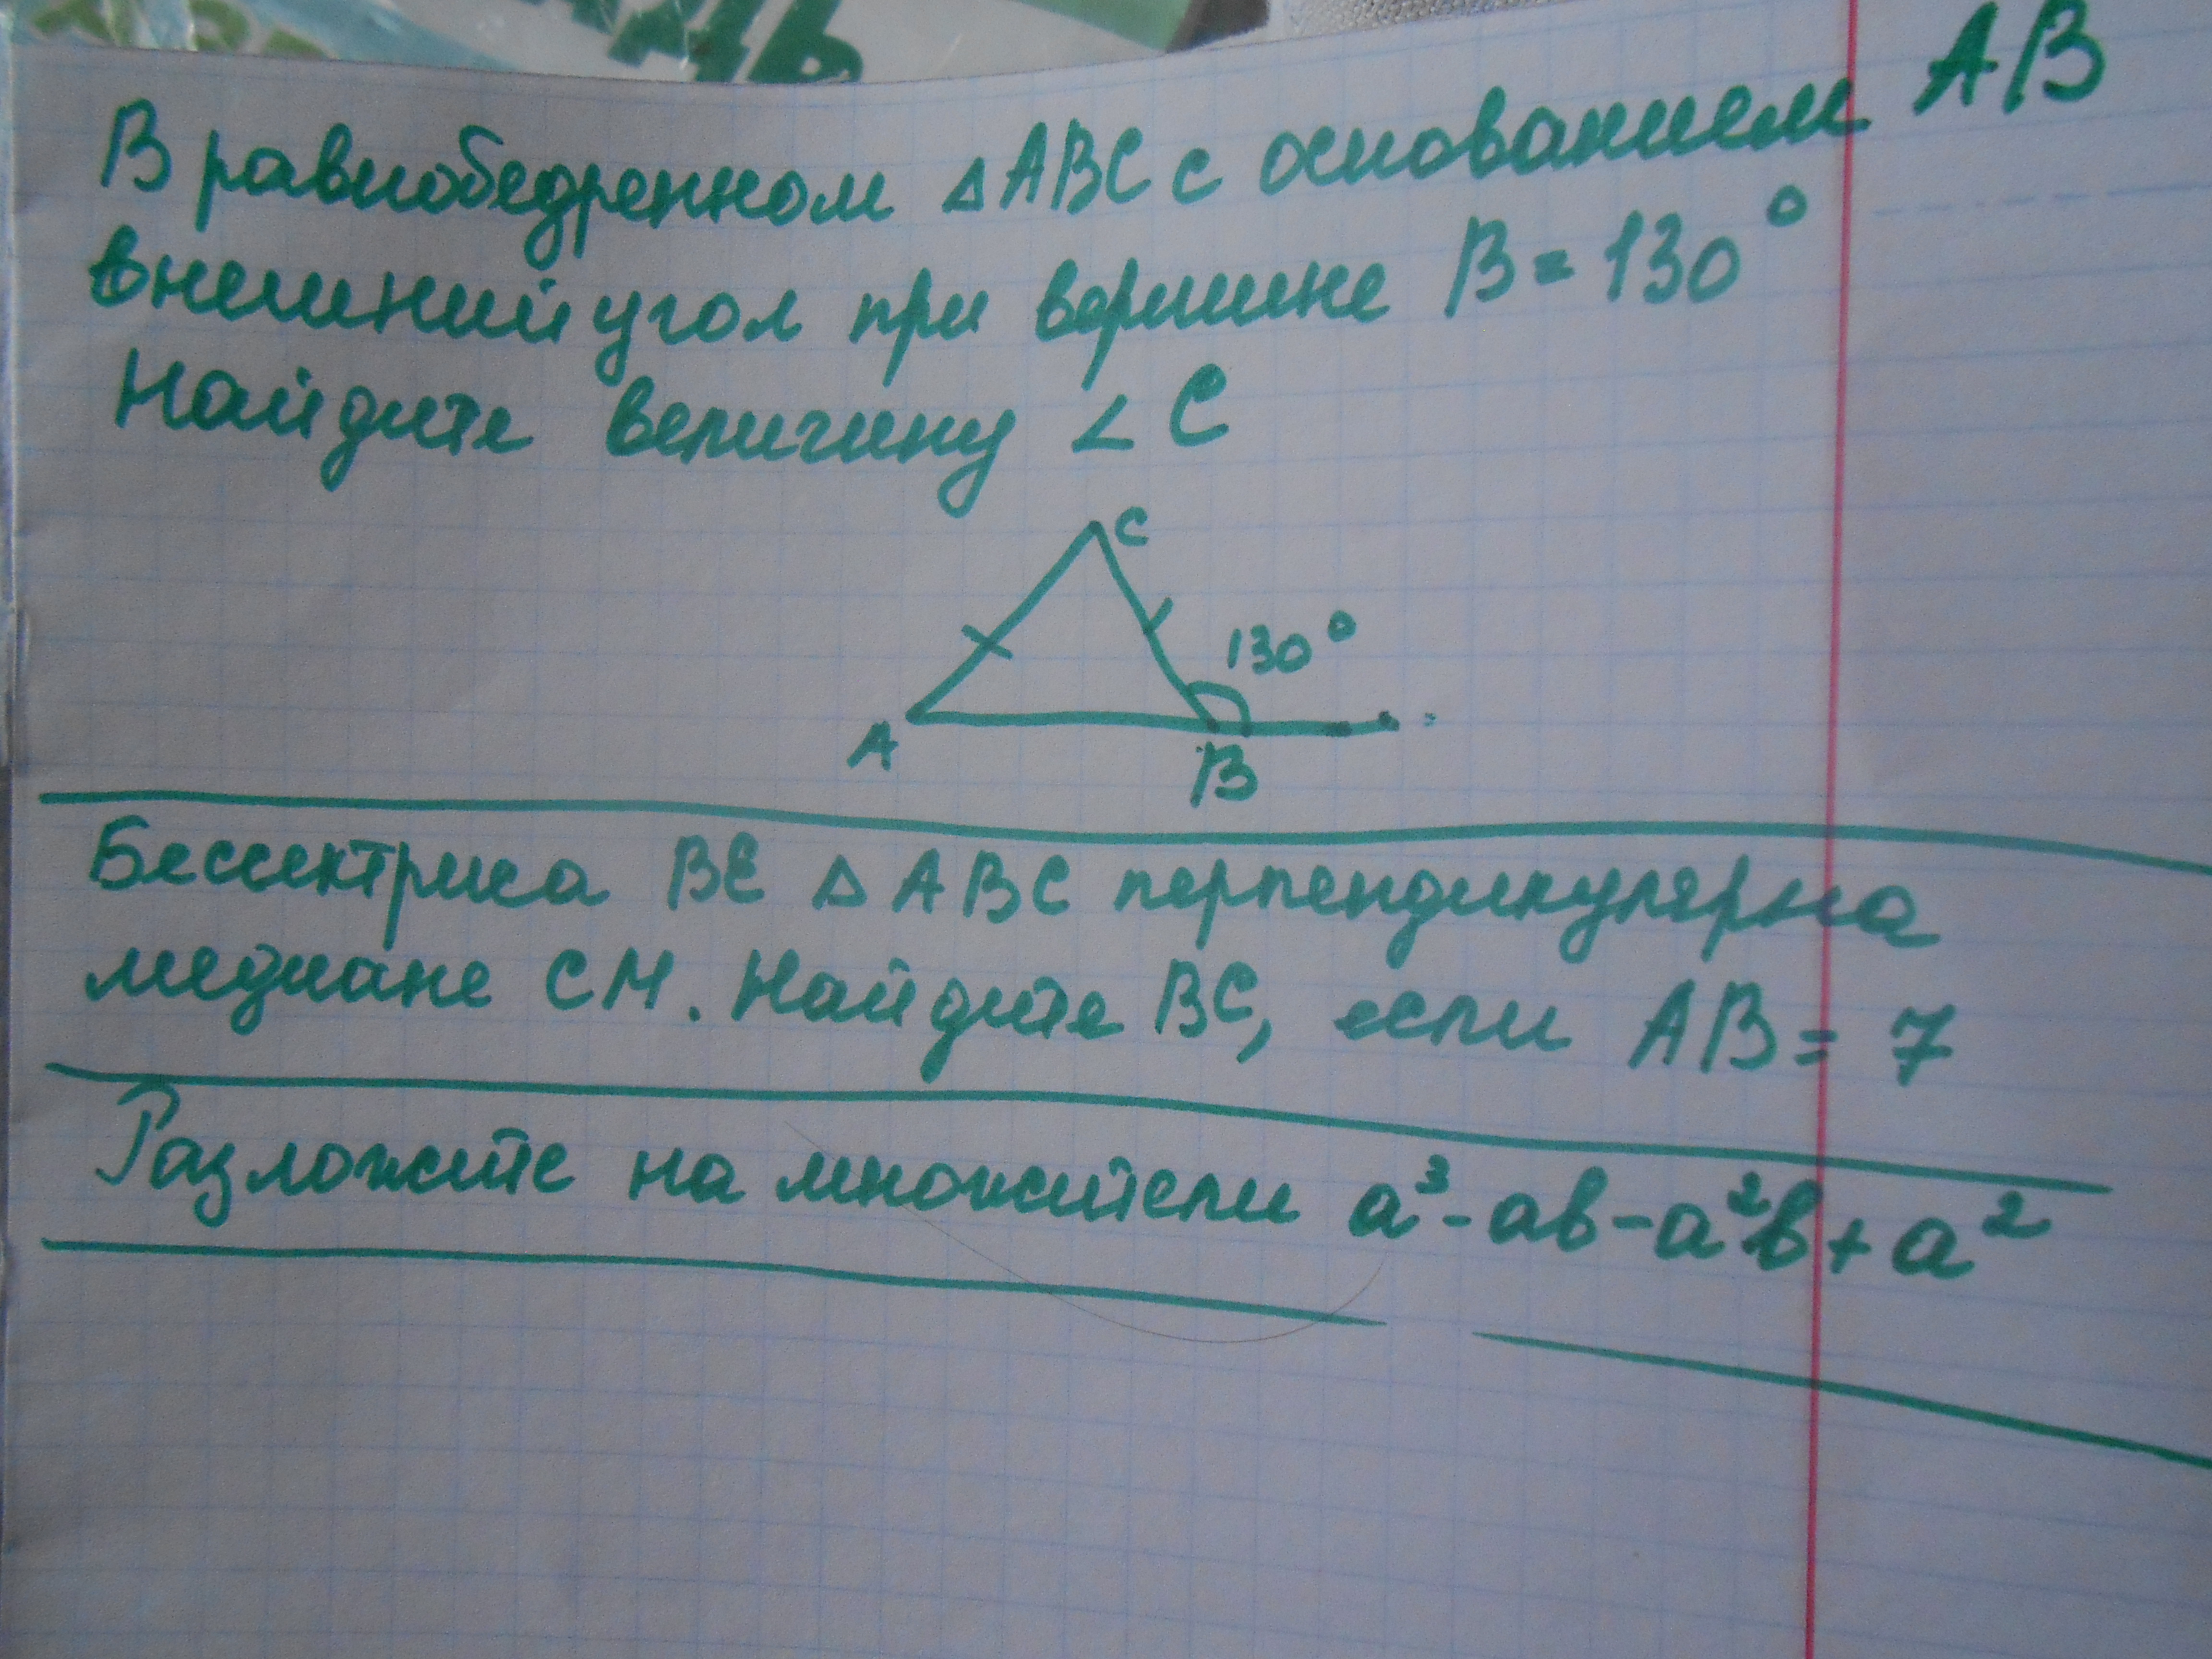 В равнобедренном △ABC с основанием AB
внешний угол при вершине B = 130°
Найдите величину ∠C
C
130°
A
B
Бессектриса BE △ABC перпендикулярна
медиане CM. Найдите BC, если AB = 7
Разложите на множители a³-ab-a²b+a²